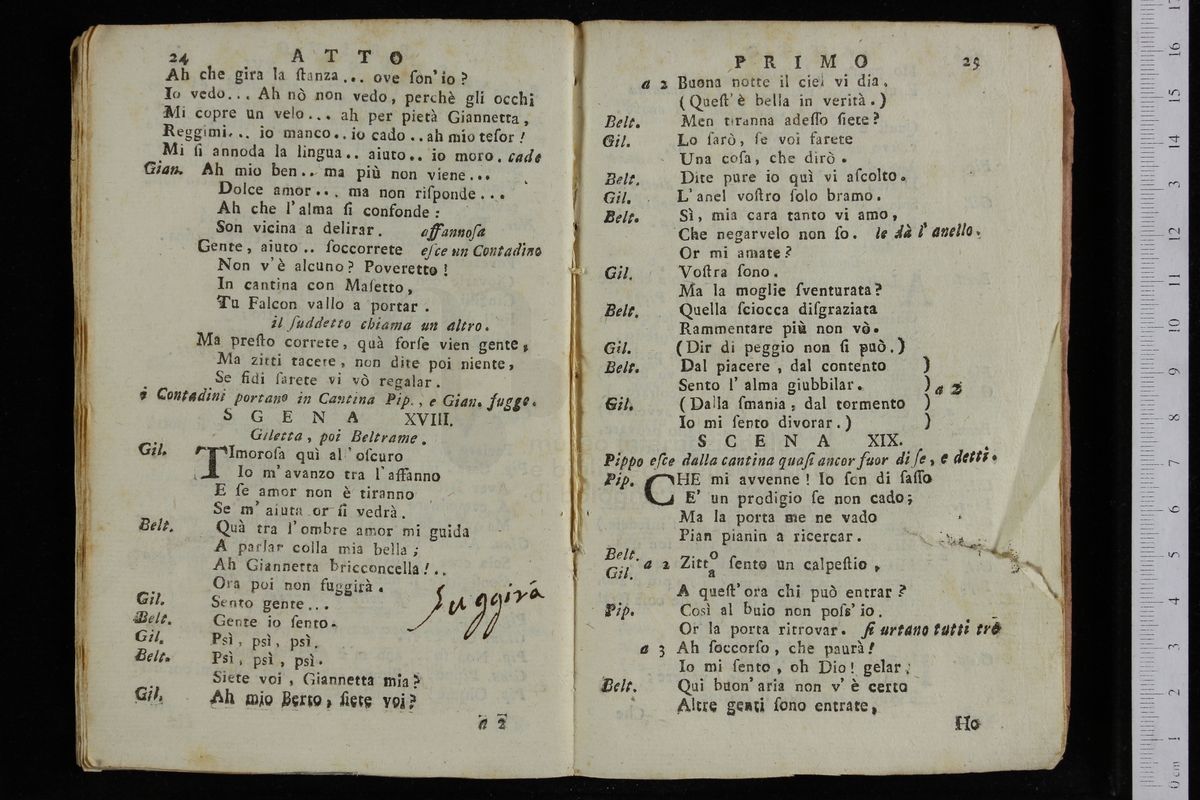 24 A T T O
Ah che gira la ſtanza... ove ſon' io?
Io vedo... Ah nò non vedo, perchè gli occhi
Mi copre un velo... ah per pietà Giannetta,
Reggimi... io manco.. io cado.. ah mio teſor!
Mi ſi annoda la lingua.. aiuto.. io moro. cade
Gian. Ah mio ben.. ma più non viene...
Dolce amor... ma non riſponde...
Ah che l'alma ſi confonde:
Son vicina a delirar. affannoſa
Gente, aiuto.. ſoccorrete eſce un Contadino
Non v'è alcuno? Poveretto!
In cantina con Maſetto,
Tu Falcon vallo a portar.
il ſuddetto chiama un altro.
Ma preſto correte, quà forſe vien gente,
Ma zitti tacere, non dite poi niente,
Se fidi ſarete vi vò regalar.
i Contadini portano in Cantina Pip., e Gian. fugge.
S G E N A XVIII.
Giletta, poi Beltrame.
Gil. TImoroſa quì al'oſcuro
Io m'avanzo tra l'affanno
E ſe amor non è tiranno
Se m'aiuta or ſi vedrà.
Belt. Quà tra l'ombre amor mi guida
A parlar colla mia bella;
Ah Giannetta bricconcella!..
Ora poi non fuggirà.
Gil. Sento gente...
fuggirá
Belt. Gente io ſento.
Gil. Psì, psì, psì.
Belt. Psì, psì, psì.
Siete voi, Giannetta mia?
Gil. Ah mio Berto, ſiete voi?
a 2
P R I M O 25
a 2 Buona notte il ciel vi dia.
(Queſt'è bella in verità.)
Belt. Men tiranna adeſſo ſiete?
Gil. Lo ſarò, ſe voi farete
Una coſa, che dirò.
Belt. Dite pure io quì vi aſcolto.
Gil. L'anel voſtro ſolo bramo.
Belt. Sì, mia cara tanto vi amo,
Che negarvelo non ſo. le dà l'anello.
Or mi amate?
Gil. Voſtra ſono.
Ma la moglie ſventurata?
Belt. Quella ſciocca diſgraziata
Rammentare più non vò.
Gil. (Dir di peggio non ſi può.)
Belt. Dal piacere, dal contento )
Sento l'alma giubbilar. ) a 2
Gil. (Dalla ſmania, dal tormento )
Io mi ſento divorar.) )
S C E N A XIX.
Pippo eſce dalla cantina quaſi ancor fuor di ſe, e detti.
Pip. CHE mi avvenne! Io ſon di ſaſſo
E' un prodigio ſe non cado;
Ma la porta me ne vado
Pian pianin a ricercar.
Belt. Gil. a 2 Zitt o a ſento un calpeſtio,
A queſt'ora chi può entrar?
Pip. Così al buio non poſs'io.
Or la porta ritrovar. ſi urtano tutti tre
a 3 Ah ſoccorſo, che paura!
Io mi ſento, oh Dio! gelar.
Belt. Qui buon'aria non v'è certo
Altre genti ſono entrate,
Ho